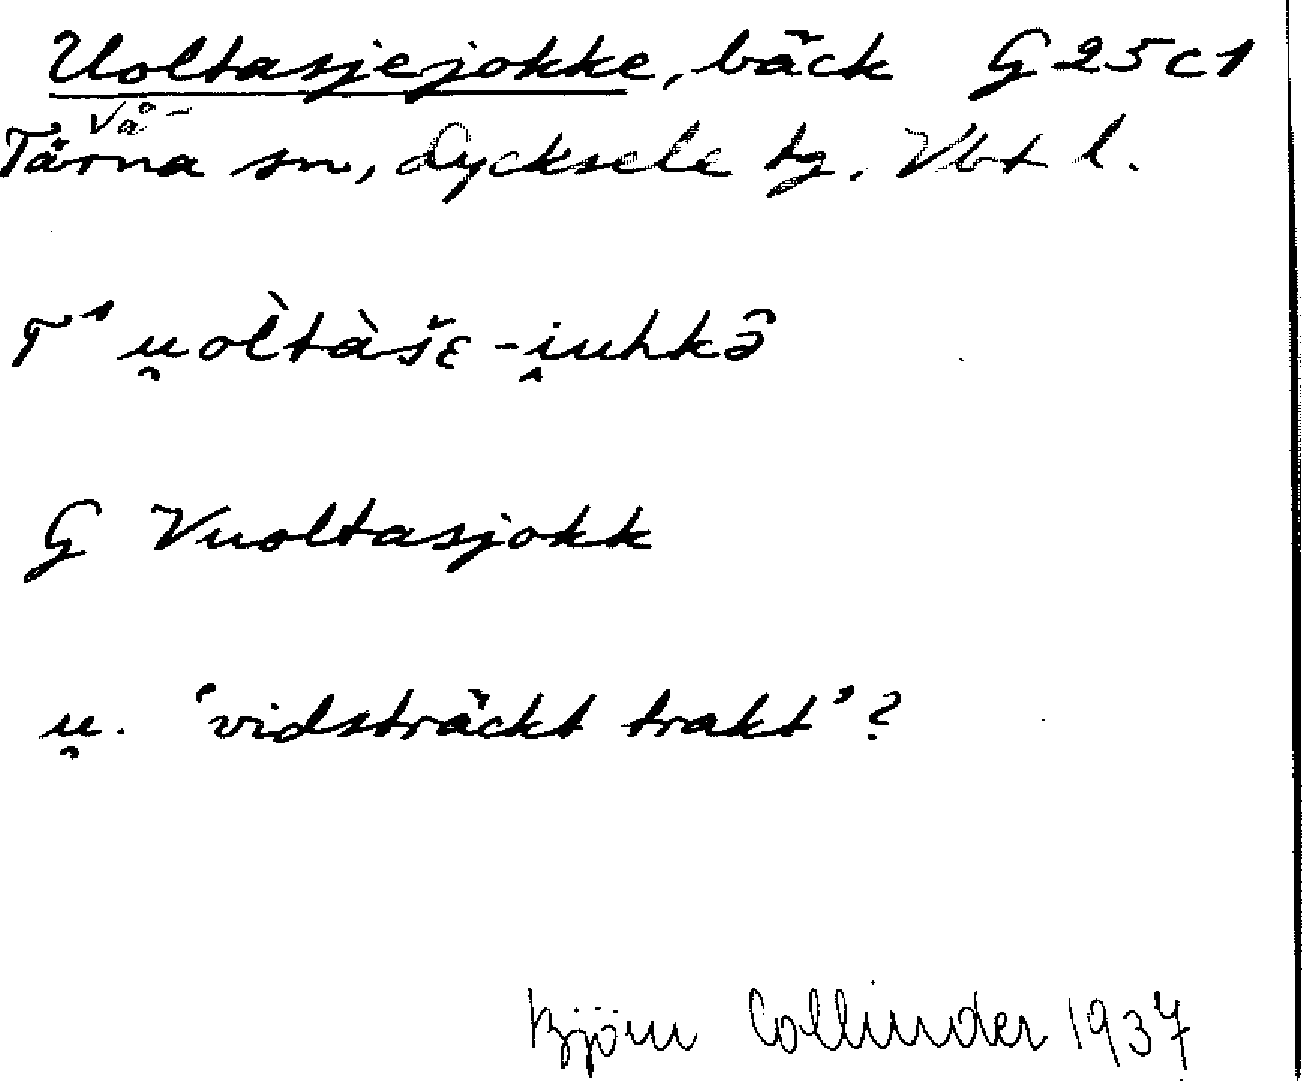 Uoltasjejokke, bäck G 25 c 1
Vå-
Tärna sn, Lycksele tg. Vbt l.
T¹ u̯ol̀tàšɛ-i̯uhkə̂
G Vuoltasjokk
u̯. 'vidsträckt trakt'?
Björn Collinder 1937